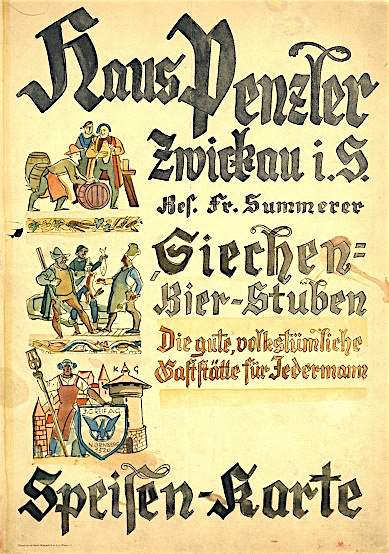 Haus Penzler
Zwickau i. S.
Bes. Fr. Summerer
Siechen=
Bier-Stuben
Die gute, volkstümliche
Gaststätte für Jedermann
KAG
J.G. REIF A.G.
NÜRNBERG
Speisen-Karte